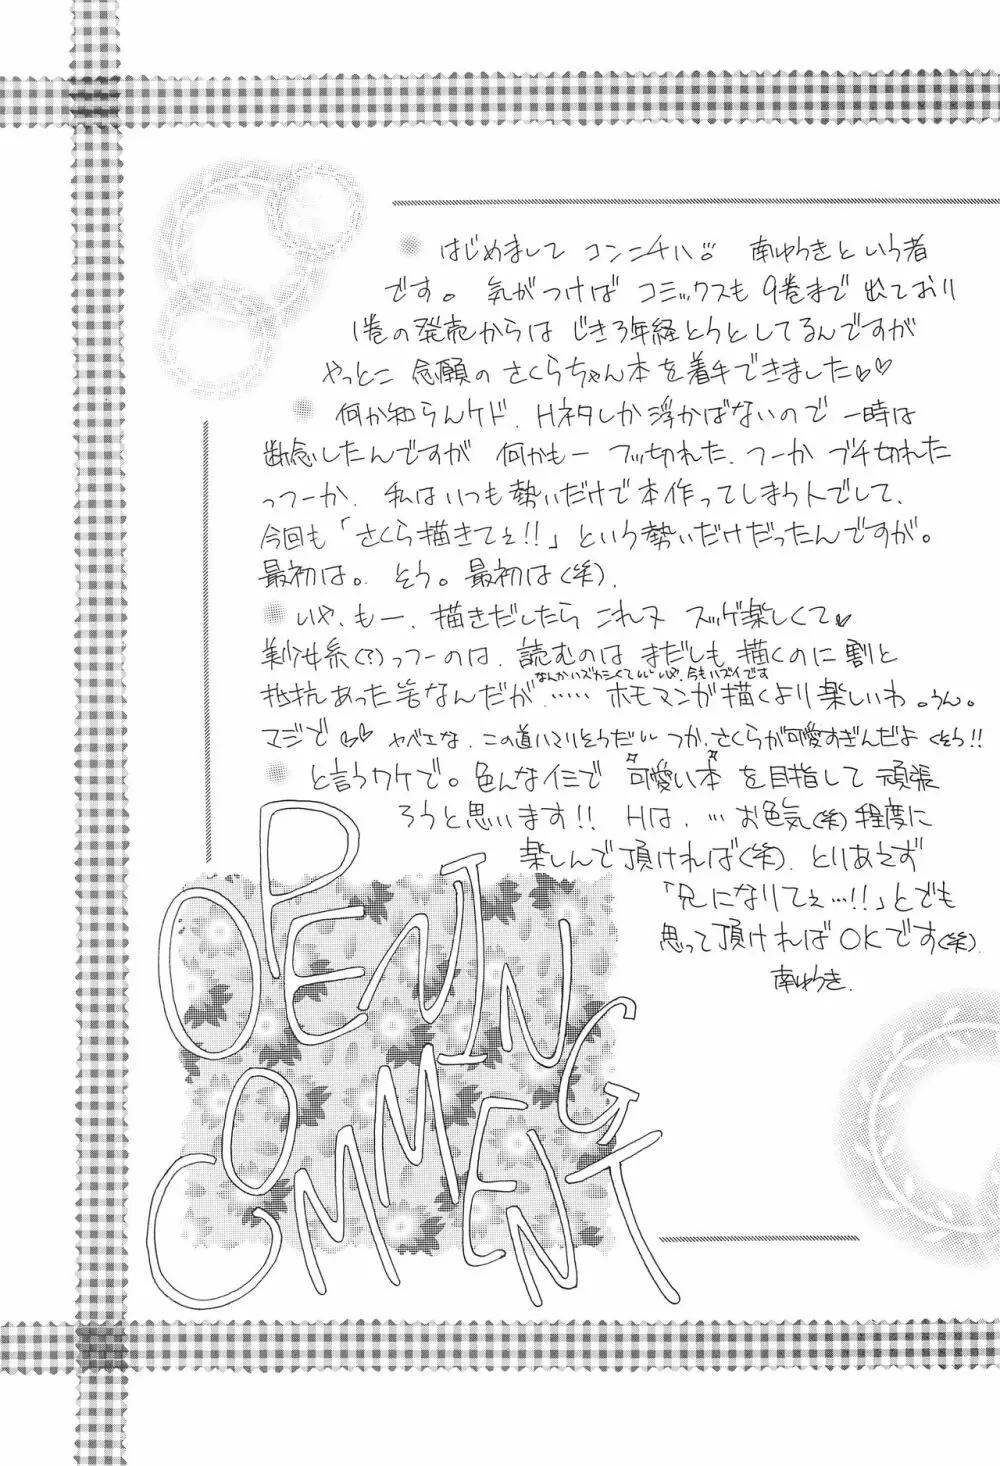 はじめまして コンニチハ。 南ゆうきという者
です。 気がつけば コミックスも 9巻まで 出ており
1巻の発売からは じき3年経とうとしてるんですが
やっとこ 念願の さくらちゃん本を着手できました♡♡
何か知らんケド、Hネタしか浮かばないので 一時は
断念したんですが 何かもー フッ切れた、つーか ブチ切れた
っつーか、 私はいつも勢いだけで本作ってしまう人でして、
今回も「さくら描きてぇ!!」という勢いだけだったんですが。
最初は。 そう。最初は(笑)、
いや、もー、描きだしたら これヌ スッゲ楽しくて♡
美少女系(?)っつーのは、読むのは まだしも 描くのに割と
なんかハズカシくて いや、今もハズイです
抵抗あった筈なんだが、…… ホモマンガ描くより楽しいわ。うん。
マジで♡♡ ヤベェな、この道ハマりそうだい つか、さくらが可愛すぎんだよ くそう!!
と言うワケで。色んなイミで 可愛い本 を目指して 頑張
ろうと思います!! Hは、…お色気(笑)程度に
楽しんで頂ければ(笑)、とりあえず
「兄になりてぇ…!!」とでも
思って頂ければOKです(笑)、
南ゆうき、
OPENING
COMMENT